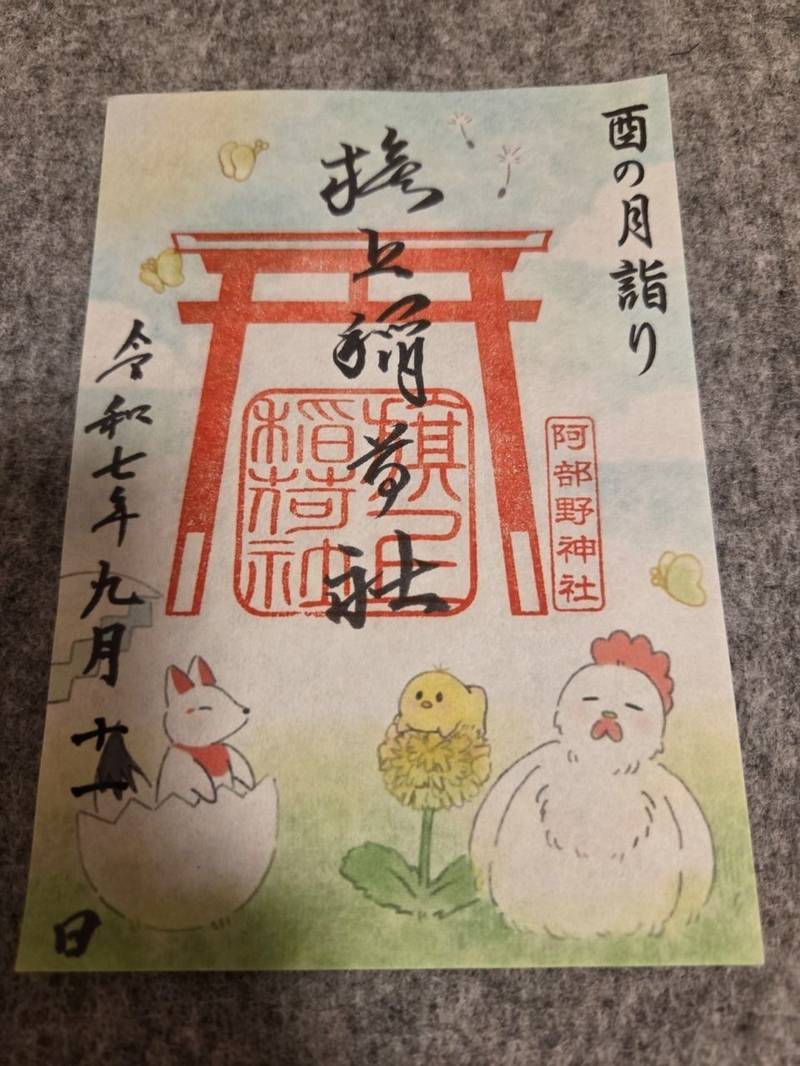 酉の月詣り
阿部野神社
旗上稲荷社
旗上
稲荷社
令和七年九月十一日